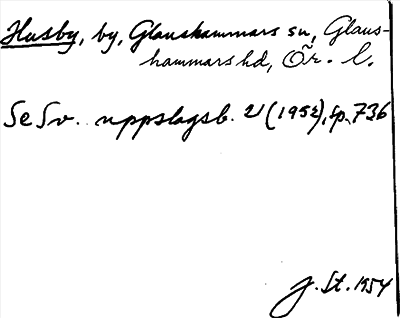 Husby, by, Glanshammars sn, Glans-
hammars hd, Ör. l.
Se Sv. uppslagsb. 2 (1952), sp. 736
J. St. 1954